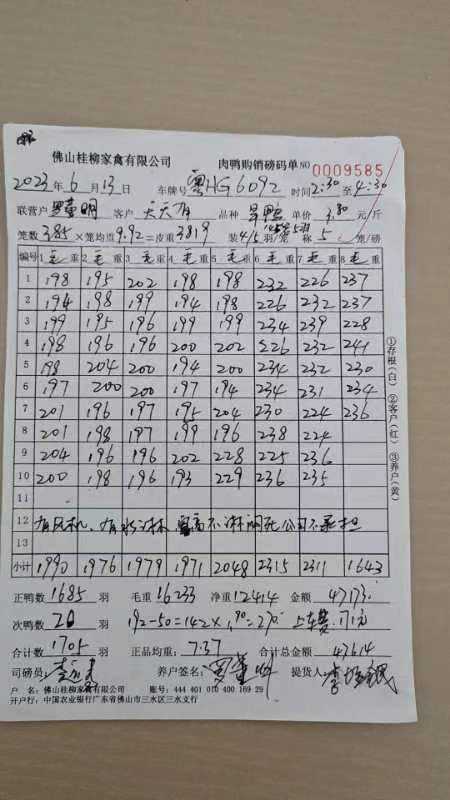 佛山桂柳家禽有限公司 肉鸭购销磅码单 NO 0009585
2023年6月13日 车牌号 粤HG6092 时间2:30至4:30
联营户 明 客户 天天有 品种 旱鸭 单价 3.80 元/斤
笼数385×笼均重9.92=皮重3819 装4/5羽/笼 称5笼/磅
编号 1毛重 2毛重 3毛重 4毛重 5毛重 6毛重 7毛重 8毛重
1 198 195 202 198 198 232 226 237
2 194 198 199 194 198 226 232 237
3 199 195 196 199 199 234 239 228
4 198 196 196 200 202 226 232 241
5 198 204 200 194 200 234 232 230
6 197 200 200 197 194 234 231 234
7 201 196 197 195 204 230 224 236
8 201 198 197 199 196 238 224
9 204 196 196 202 228 225 236
10 200 198 196 193 229 236 235
11
12 有风机、有水淋 不淋闷死公司不承担
13
小计 1990 1976 1979 1971 2048 2315 2311 1643
①存根(白) ②客户(红) ③养户(黄)
正鸭数 1685 羽 毛重 16233 净重 12414 金额 47173
次鸭数 20 羽 192-50=142×1.90=270 上车费171元
合计数 1705 羽 正品均重: 7.37 合计总金额 47614
司磅员: 养户签名: 提货人:
户 名: 佛山桂柳家禽有限公司 账号: 444 401 010 400 169 29
开户行: 中国农业银行广东省佛山市三水区三水支行